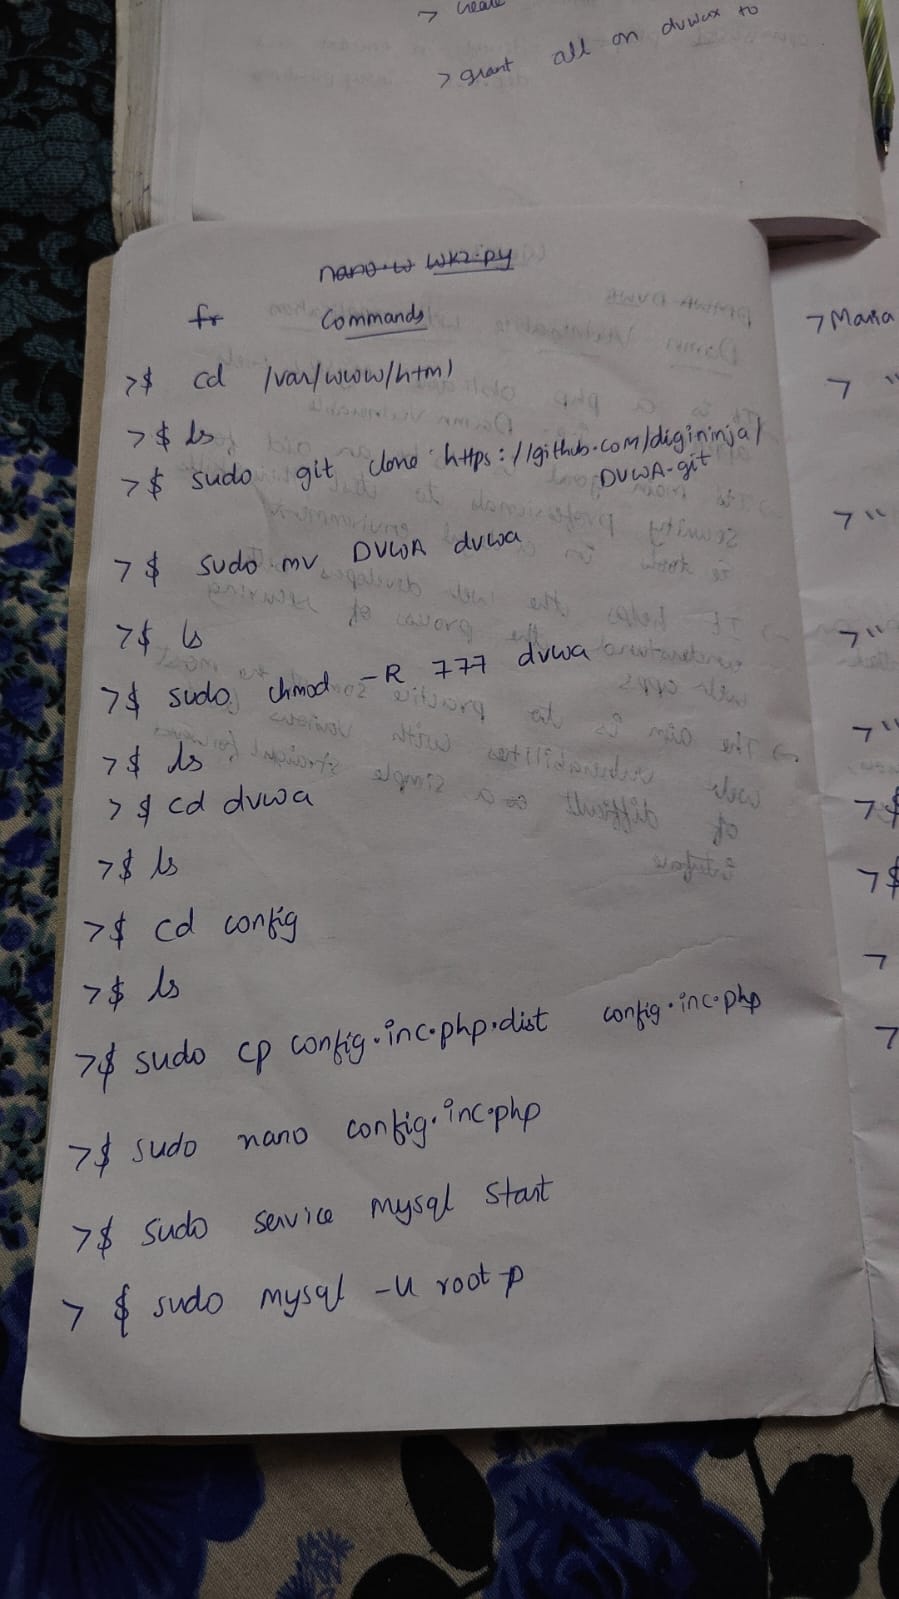 > create
> grant all on dvwax to
nano w wk2.py
fr Commands
>$ cd /var/www/html
>$ ls
>$ sudo git clone https://github.com/digininja/
DVWA-git
>$ sudo mv DVWA dvwa
>$ ls
>$ sudo chmod -R 777 dvwa
>$ ls
>$ cd dvwa
>$ ls
>$ cd config
>$ ls
>$ sudo cp config.inc.php.dist config.inc.php
>$ sudo nano config.inc.php
>$ sudo service mysql start
>$ sudo mysql -u root -p
> Maria
> "
> "
> "
> "
>$
>$
>
>